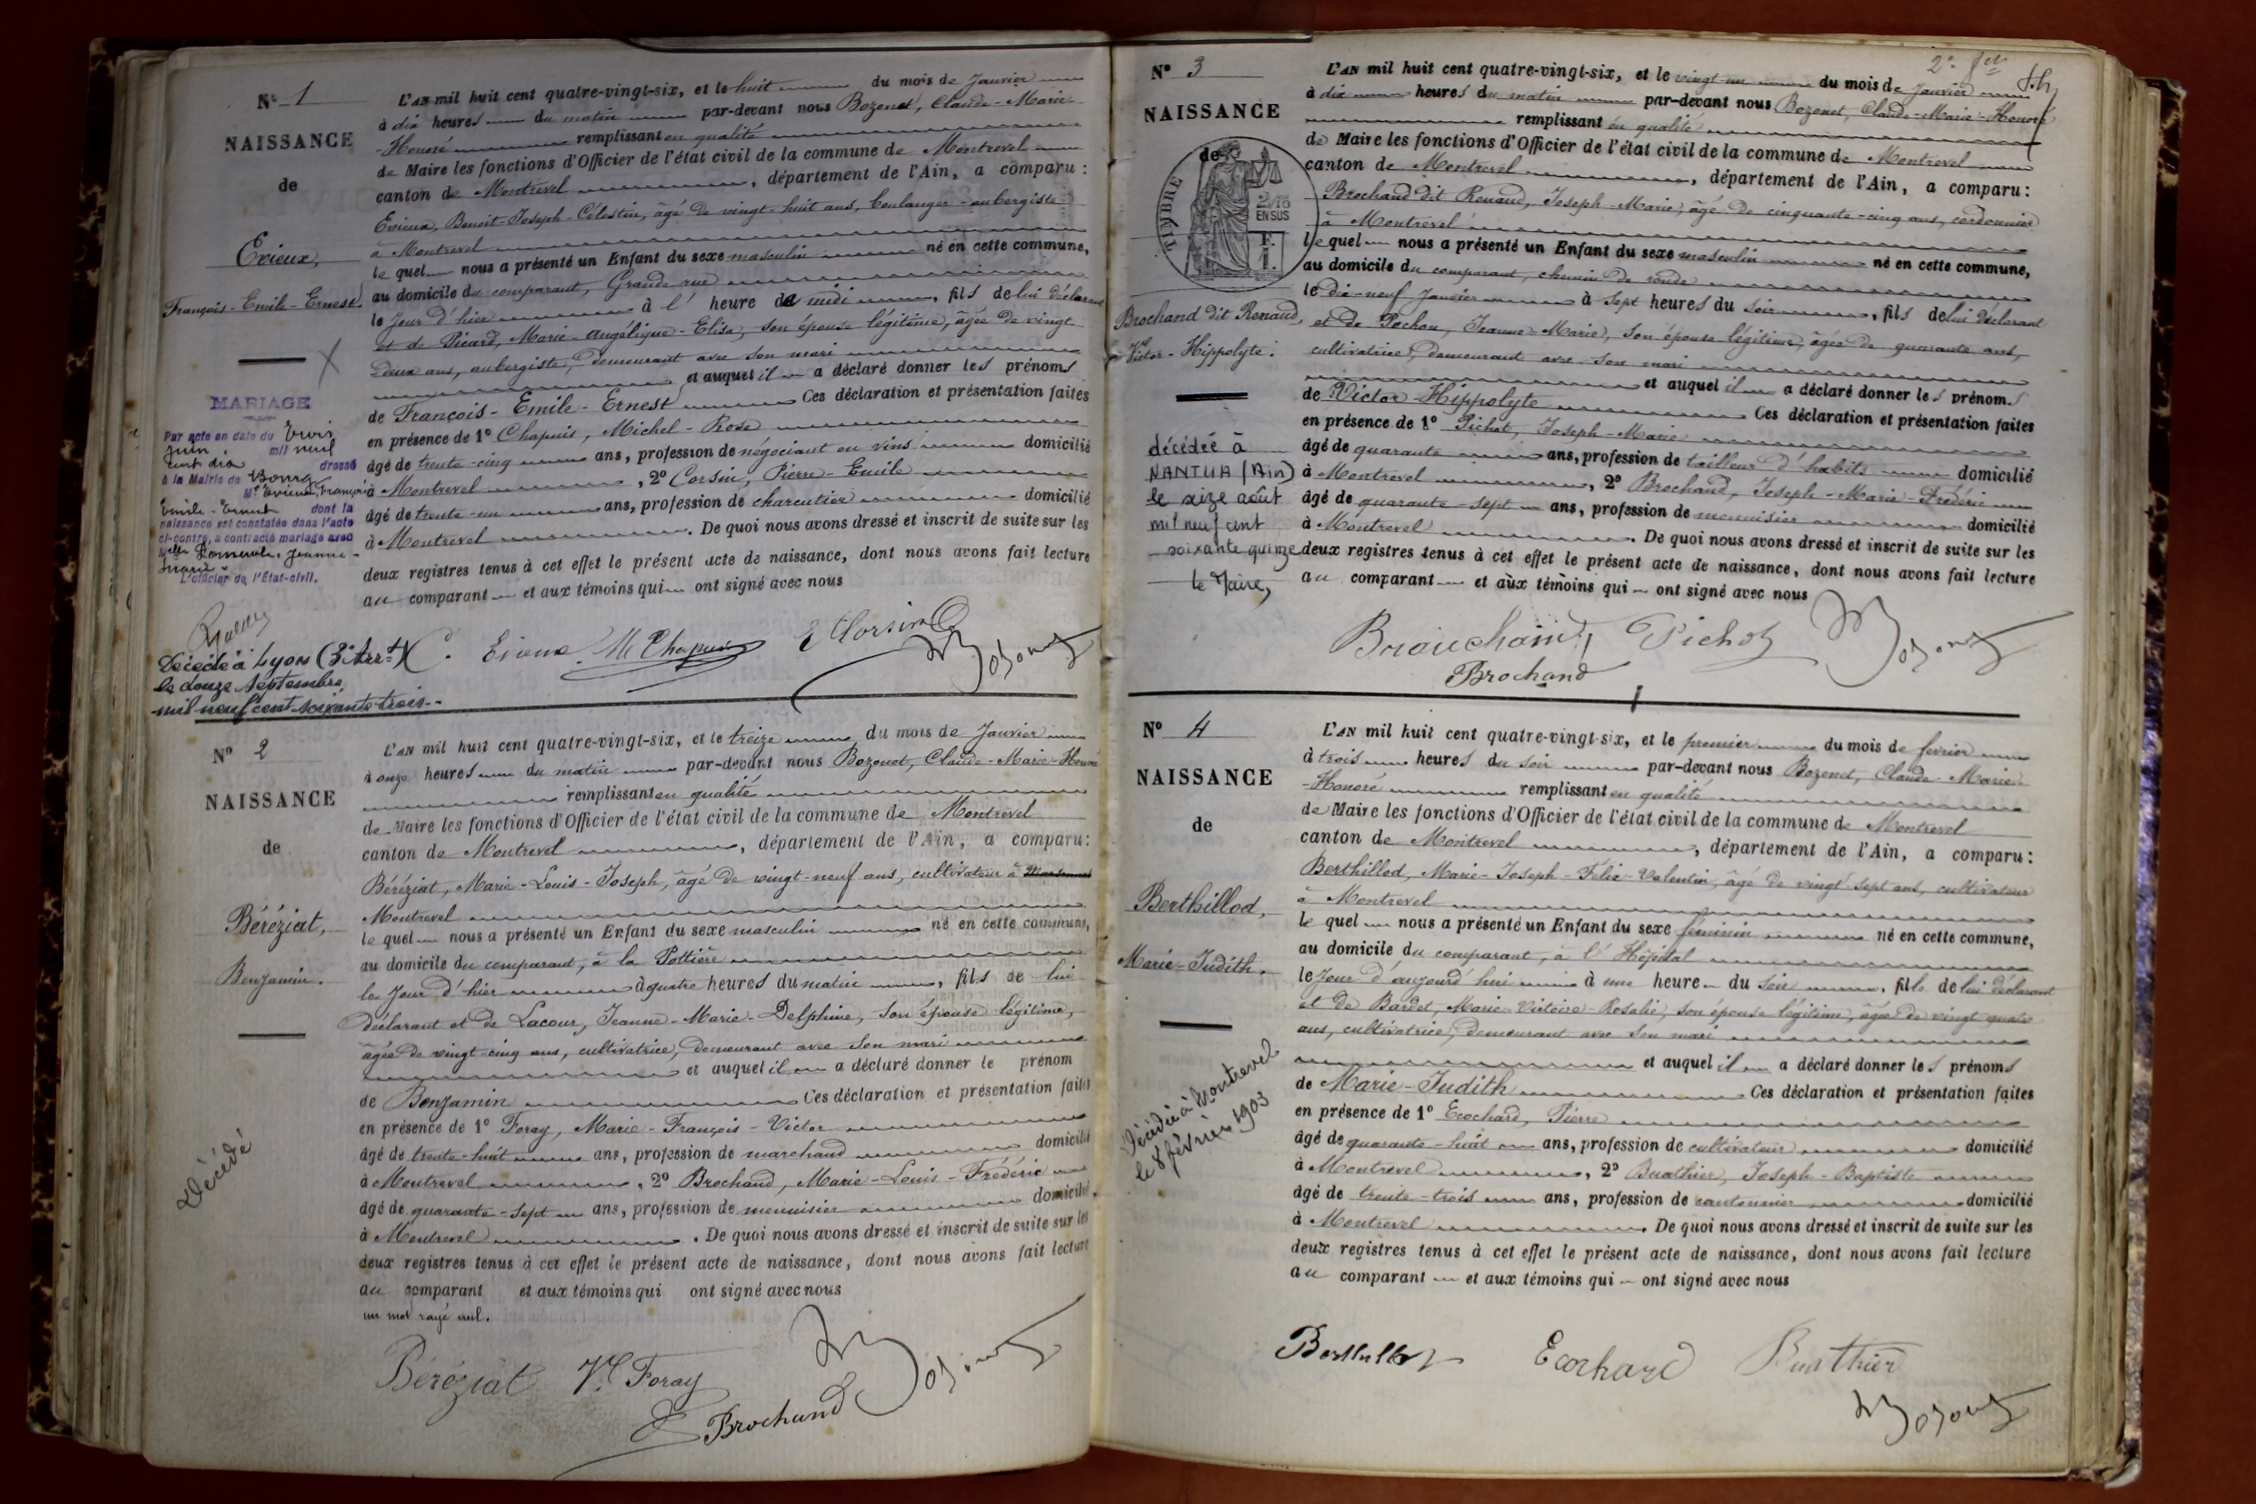 Nº 1
NAISSANCE
de
Evieux,
François-Emile-Ernest.
MARIAGE
Par acte en date du trois
juin, mil neuf
cent dix dressé
à la Mairie de Bourg
Mr Evieux, François
Emile-Ernest dont la
naissance est constatée dans l'acte
ci-contre, a contracté mariage avec
Melle Jeanne-
Marie.
L'officier de l'État-civil.
Décédé à Lyon (3e Arrt)
le douze septembre
mil neuf cent soixante trois.
L'AN mil huit cent quatre-vingt-six, et le huit du mois de Janvier
à dix heures du matin par-devant nous Bozonet, Claude-Marie
-Honoré remplissant en qualité
de Maire les fonctions d'Officier de l'état civil de la commune de Montrevel
canton de Montrevel, département de l'Ain, a comparu :
Evieux, Benoit-Joseph-Célestin, âgé de vingt-huit ans, boulanger-aubergiste
à Montrevel
lequel nous a présenté un Enfant du sexe masculin né en cette commune,
au domicile du comparant, Grande rue
le jour d'hier à l'heure de midi, fils de lui déclarant
et de Picard, Marie-Angélique-Elisa, son épouse légitime, âgée de vingt
deux ans, aubergiste, demeurant avec son mari
et auquel il a déclaré donner les prénoms
de François-Emile-Ernest Ces déclaration et présentation faites
en présence de 1º Chapuis, Michel-Rose
âgé de trente-cinq ans, profession de négociant en vins domicilié
à Montrevel, 2º Corsin, Pierre-Emile
âgé de trente-un ans, profession de charcutier domicilié
à Montrevel. De quoi nous avons dressé et inscrit de suite sur les
deux registres tenus à cet effet le présent acte de naissance, dont nous avons fait lecture
au comparant et aux témoins qui ont signé avec nous
C. Evieux M Chapuis E Corsin Bozonet
Nº 2
NAISSANCE
de
Béréziat,
Benjamin.
Décédé
L'AN mil huit cent quatre-vingt-six, et le treize du mois de Janvier
à onze heures du matin par-devant nous Bozonet, Claude-Marie-Honoré
remplissant en qualité
de Maire les fonctions d'Officier de l'état civil de la commune de Montrevel
canton de Montrevel, département de l'Ain, a comparu :
Béréziat, Marie-Louis-Joseph, âgé de vingt-neuf ans, cultivateur à
Montrevel
lequel nous a présenté un Enfant du sexe masculin né en cette commune,
au domicile du comparant, à la Pottière
le jour d'hier à quatre heures du matin, fils de lui
déclarant et de Lacour, Jeanne-Marie-Delphine, son épouse légitime,
âgée de vingt-cinq ans, cultivatrice, demeurant avec son mari
et auquel il a déclaré donner le prénom
de Benjamin Ces déclaration et présentation faites
en présence de 1º Foray, Marie-François-Victor
âgé de trente-huit ans, profession de marchand domicilié
à Montrevel, 2º Brochand, Marie-Louis-Frédéric
âgé de quarante-sept ans, profession de menuisier domicilié
à Montrevel. De quoi nous avons dressé et inscrit de suite sur les
deux registres tenus à cet effet le présent acte de naissance, dont nous avons fait lecture
au comparant et aux témoins qui ont signé avec nous
un mot rayé nul.
Béréziat Vr Foray
Brochand Bozonet
2e fet
Nº 3
NAISSANCE
de
TIMBRE
2/10
EN SUS
Brochand dit Renaud,
Victor-Hippolyte.
décédé à
NANTUA (Ain)
le seize août
mil neuf cent
soixante quinze
Le Maire,
L'AN mil huit cent quatre-vingt-six, et le vingt-un du mois de Janvier
à dix heures du matin par-devant nous Bozonet, Claude-Marie-Honoré
remplissant en qualité
de Maire les fonctions d'Officier de l'état civil de la commune de Montrevel
canton de Montrevel, département de l'Ain, a comparu :
Brochand dit Renaud, Joseph-Marie, âgé de cinquante-cinq ans, cordonnier
à Montrevel
lequel nous a présenté un Enfant du sexe masculin né en cette commune,
au domicile du comparant, chemin de ronde
le dix-neuf Janvier à sept heures du soir, fils de lui déclarant
et de Pochon, Jeanne-Marie, son épouse légitime, âgée de quarante ans,
cultivatrice, demeurant avec son mari
et auquel il a déclaré donner les prénoms
de Victor-Hippolyte Ces déclaration et présentation faites
en présence de 1º Pichot, Joseph-Marie
âgé de quarante ans, profession de tailleur d'habits domicilié
à Montrevel, 2º Brochand, Joseph-Marie-Frédéric
âgé de quarante-sept ans, profession de menuisier domicilié
à Montrevel. De quoi nous avons dressé et inscrit de suite sur les
deux registres tenus à cet effet le présent acte de naissance, dont nous avons fait lecture
au comparant et aux témoins qui ont signé avec nous
Pichot Bozonet
Brochand
Nº 4
NAISSANCE
de
Berthillod,
Marie-Judith.
Décédée à Montrevel
le 8 février 1903
L'AN mil huit cent quatre-vingt-six, et le premier du mois de février
à trois heures du soir par-devant nous Bozonet, Claude-Marie
-Honoré remplissant en qualité
de Maire les fonctions d'Officier de l'état civil de la commune de Montrevel
canton de Montrevel, département de l'Ain, a comparu :
Berthillod, Marie-Joseph-Félix-Valentin, âgé de vingt sept ans, cultivateur
à Montrevel
lequel nous a présenté un Enfant du sexe féminin né en cette commune,
au domicile du comparant, à l'Hôpital
le jour d'aujourd'hui à une heure du soir, fille de lui déclarant
et de Bardet, Marie-Victoire-Rosalie, son épouse légitime, âgée de vingt quatre
ans, cultivatrice, demeurant avec son mari
et auquel il a déclaré donner les prénoms
de Marie-Judith Ces déclaration et présentation faites
en présence de 1º Ecochard, Pierre
âgé de quarante-huit ans, profession de cultivateur domicilié
à Montrevel, 2º Buathier, Joseph-Baptiste
âgé de trente-trois ans, profession de cantonnier domicilié
à Montrevel. De quoi nous avons dressé et inscrit de suite sur les
deux registres tenus à cet effet le présent acte de naissance, dont nous avons fait lecture
au comparant et aux témoins qui ont signé avec nous
Berthillod Ecochard Buathier
Bozonet